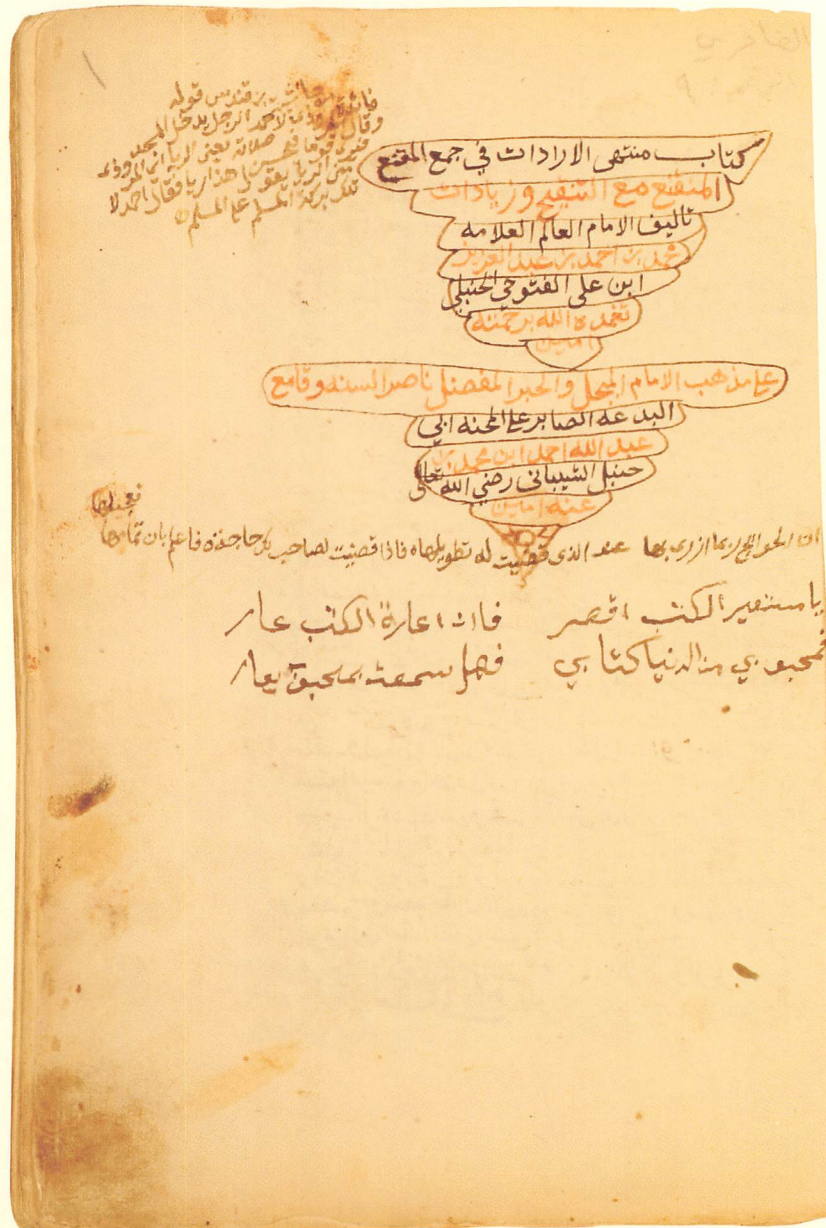 الفاخري
١
فائدة من حاشية بن قندس قوله
وقال المروذي لاحمد الرجل يدخل المسجد
فيرى قوما فيحسن صلاته يعني الريا
تلك بركة المسلم على المسلم
كتاب منتهى الارادات في جمع المقنع
المنقنع مع التنقيح وزيادات
تاليف الامام العالم العلامه
محمد بن احمد بن عبد العزيز
ابن على الفتوحي الحنبلي
تغمده الله برحمته
امين
على مذهب الامام المبجل والحبر المفضل ناصر السنه وقامع
البدعه الصابر على المحنه ابي
عبد الله احمد ابن محمد بن
حنبل الشيباني رضي الله تعالى
عنه امين
ان الحوائج ربما ازرى بها عند الذى قضيت له تطويلها فاذا قضيت لصاحب لك حاجة فاعلم بان تمامها
تعجيلها
يا مستعير الكتب اقصر فان اعارة الكتب عار
فمحبوبي من الدنيا كتابي فهل سمعت بمحبوب يعار